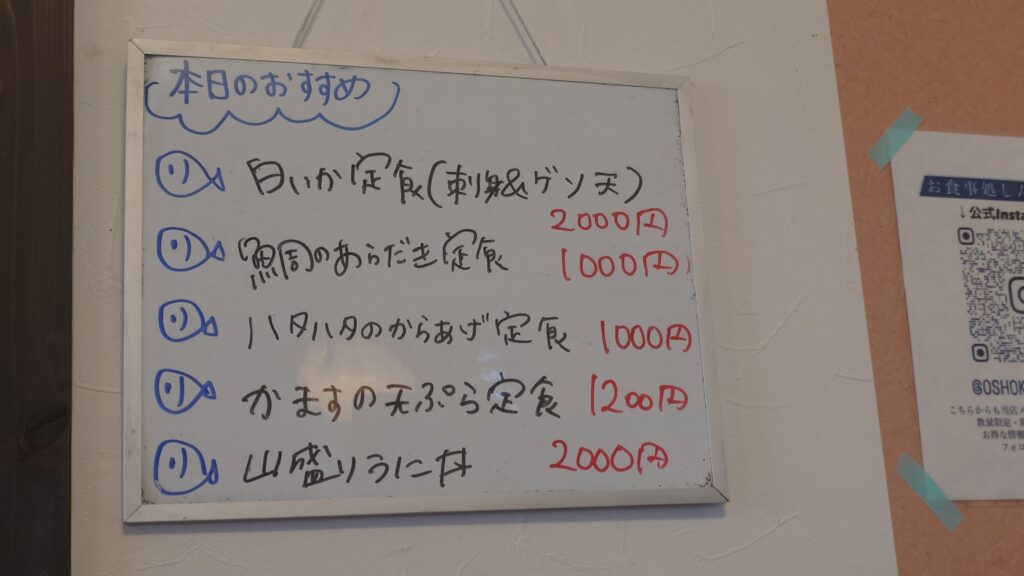 本日のおすすめ
白いか定食(刺身&ゲソ天)
2000円
鯛のあらだき定食 1000円
ハタハタのからあげ定食 1000円
かますの天ぷら定食 1200円
山盛りうに丼 2000円
お食事処し
↓公式Insta
@OSHOK
こちらからも当店
数量限定・
お得な情報
フォロ